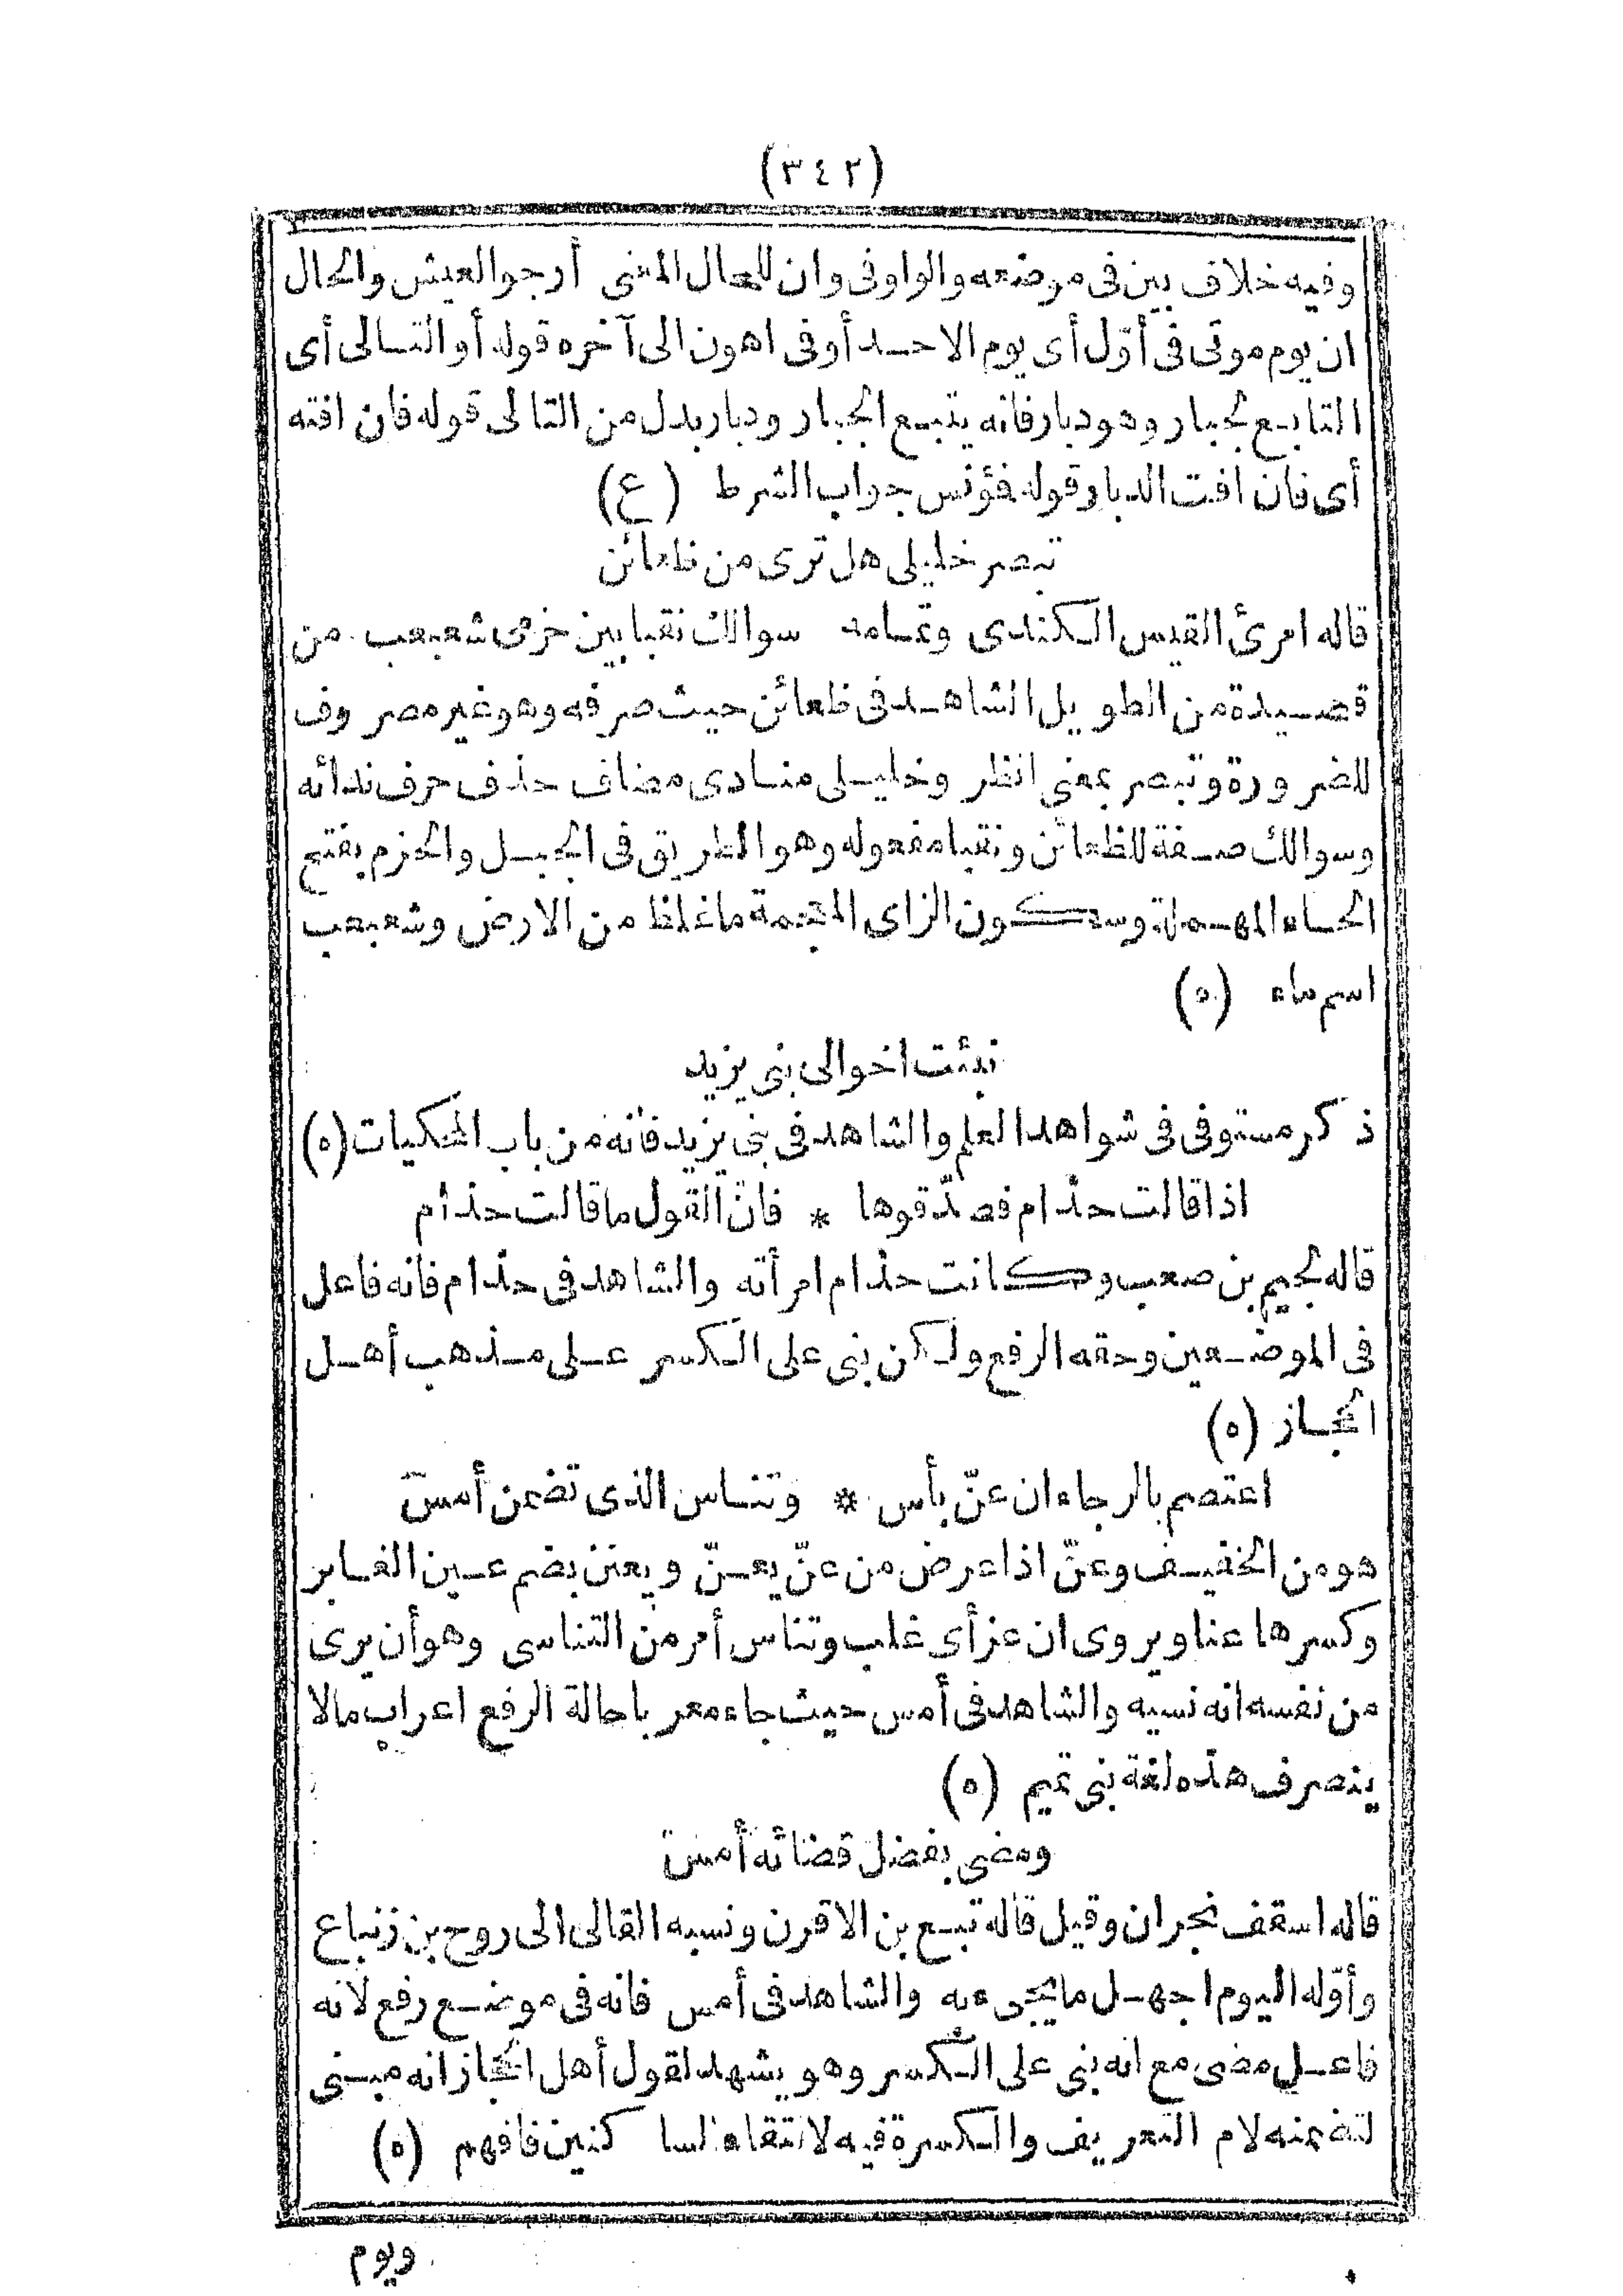 (٣٤٢)
وفيه خلاف بين في موضعه والواو في وان للحال المعنى أرجو العيش والحال
ان يوم موتى فى أوّل أى يوم الاحد أو فى اهون الى آخره قوله أو التالى أى
التابع لجبار وهو دبار فانه يتبع الجبار ودبار بدل من التالى قوله فان افته
أى فان افت الدبار وقوله فؤنس جواب الشرط (ع)
تبصر خليلى هل ترى من ظعائن
قاله امرئ القيس الكندى وتمامه سوالك نقبا بين خزمى شعبعب من
قصيدة من الطويل الشاهد فى ظعائن حيث صرفه وهو غير مصروف
للضرورة وتبصر بمعنى انظر وخليلى منادى مضاف حذف حرف ندائه
وسوالك صفة للظعائن ونقبا مفعوله وهو الطريق فى الجبل والحزم بفتح
الحاء المهملة وسكون الزاى المعجمة ماغلظ من الارض وشعبعب
اسم ماء (ه)
نبئت اخوالى بنى يزيد
ذكر مستوفى فى شواهد العلم والشاهد فى بنى يزيد فانه من باب المحكيات (ه)
اذا قالت حذام فصدّقوها * فانّ القول ماقالت حذام
قاله لجيم بن صعب وكانت حذام امرأته والشاهد فى حذام فانه فاعل
فى الموضعين وحقه الرفع ولكن بنى على الكسر على مذهب أهل
الحجاز (ه)
اعتصم بالرجاء ان عنّ بأس * وتناس الذى تضمن أمس
هو من الخفيف وعنّ اذا عرض من عنّ يعنّ ويعنن بضم عين الغابر
وكسرها عنا ويروى ان عز أى غلب وتناس أمر من التناسى وهو أن يرى
من نفسه انه نسيه والشاهد فى أمس حيث جاء معربا حالة الرفع اعراب مالا
ينصرف هذه لغة بنى تميم (ه)
ومضى بفضل قضائه أمس
قاله اسقف نجران وقيل قاله تبع بن الاقرن ونسبه القالى الى روح بن زنباع
وأوّله اليوم اجهل مايجىء به والشاهد فى أمس فانه فى موضع رفع لانه
فاعل مضى مع انه بنى على الكسر وهو يشهد لقول أهل الحجاز انه مبنى
لتضمنه لام التعريف والكسرة فيه لالتقاء الساكنين فافهم (ه)
ويوم